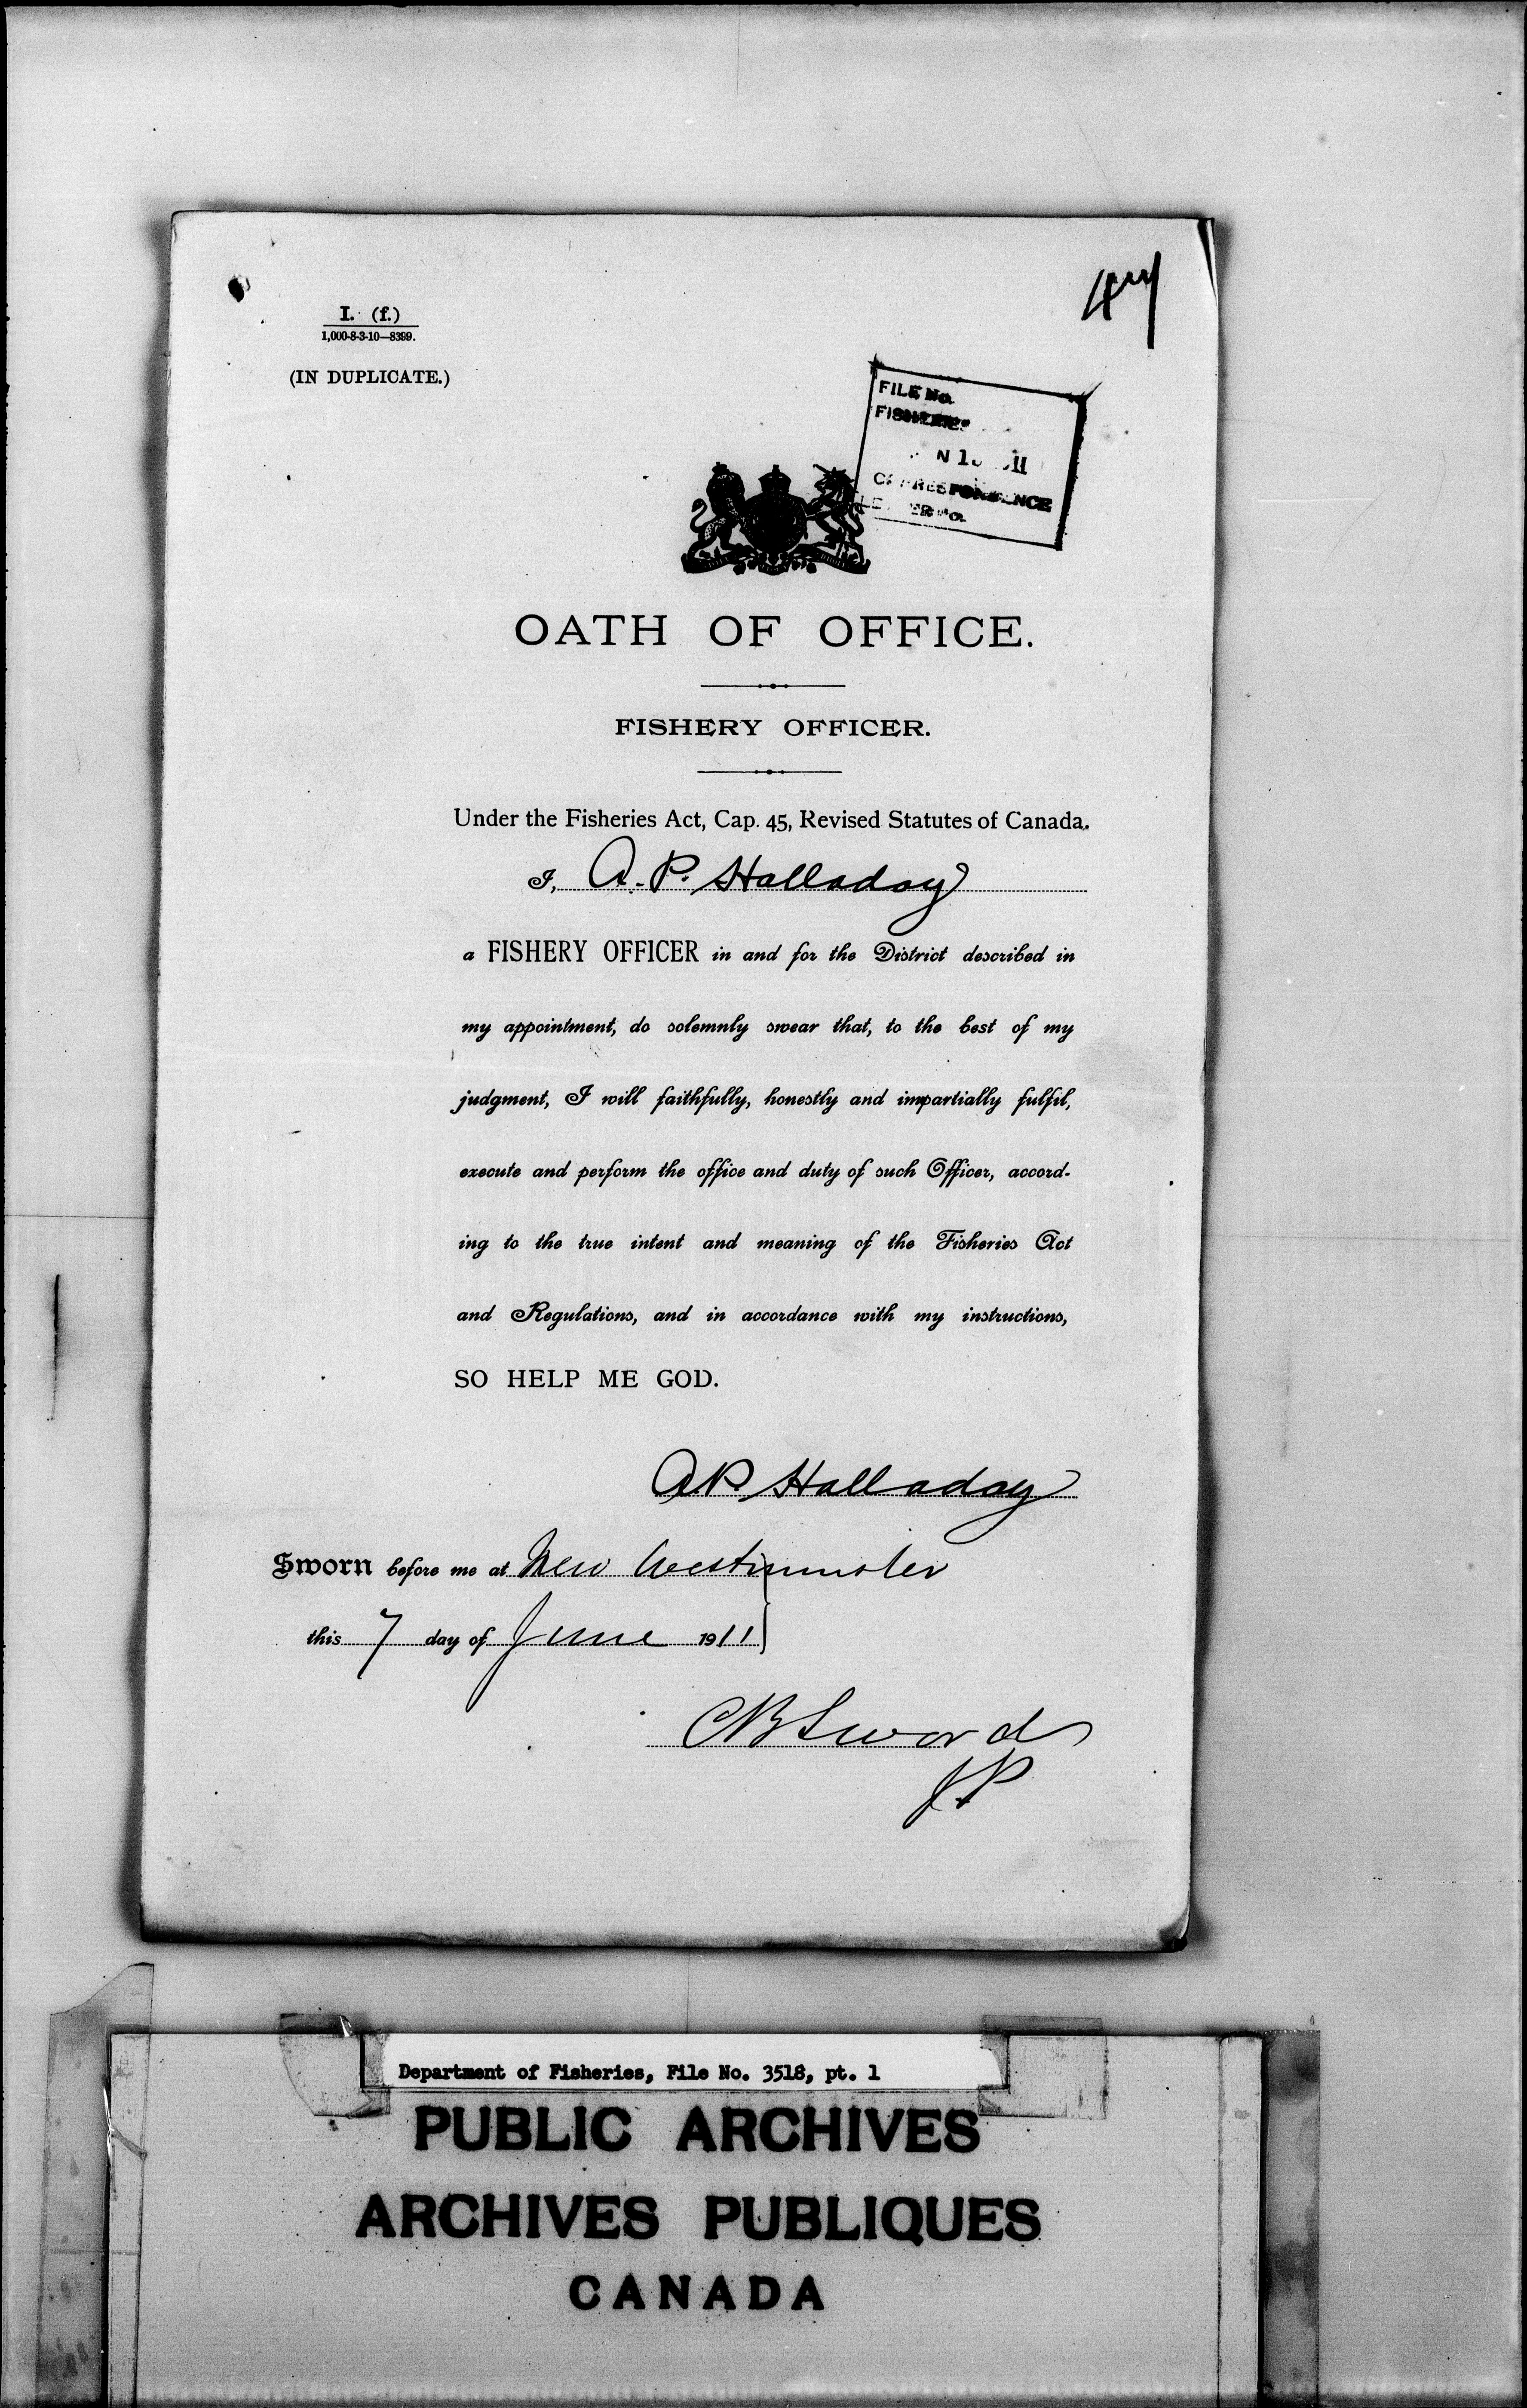 47
I. (f.)
1,000-8-3-10—8399.
(IN DUPLICATE.)
FILE No.
FISHERIES
CORRESPONDENCE
OATH OF OFFICE.
FISHERY OFFICER.
Under the Fisheries Act, Cap. 45, Revised Statutes of Canada.
I, A. P. Halladay
a FISHERY OFFICER in and for the District described in
my appointment, do solemnly swear that, to the best of my
judgment, I will faithfully, honestly and impartially fulfil,
execute and perform the office and duty of such Officer, accord-
ing to the true intent and meaning of the Fisheries Act
and Regulations, and in accordance with my instructions,
SO HELP ME GOD.
A P Halladay
Sworn before me at New Westminster
this 7 day of June 1911
C B Sword
J.P
Department of Fisheries, File No. 3518, pt. 1
PUBLIC ARCHIVES
ARCHIVES PUBLIQUES
CANADA